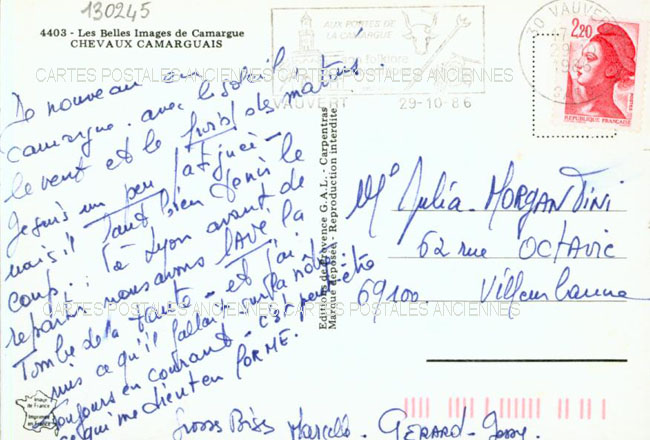 130245
4403 - Les Belles Images de Camargue
CHEVAUX CAMARGUAIS
AUX PORTES DE
LA CAMARGUE
folklore
VAUVERT 29-10-86
30 VAUVERT
2,20
REPUBLIQUE FRANCAISE
CARTES POSTALES ANCIENNES CARTES POSTALES ANCIENNES
De nouveau en
Camargue. avec le soleil
le vent et le froid des matins.
Je suis un peu fatiguée
mais il faut bien tenir le
coup... à Lyon avant de
repartir nous avons LAVÉ la
Tombe de la tante - et j'ai
mis ce qu'il fallait sur la nôtre
toujours en courant - c'est peut-être
ce qui me tient en FORME.
Gross Bises Marcelle - GERARD -
Editions de Provence G.A.L. - Carpentras
Marque déposée - Reproduction interdite
Me Julia - MORGANTINI
62 rue OCTAVIE
69100. Villeurbanne
CARTES POSTALES ANCIENNES CARTES POSTALES ANCIENNES
Image
de France
Imprimée
en France